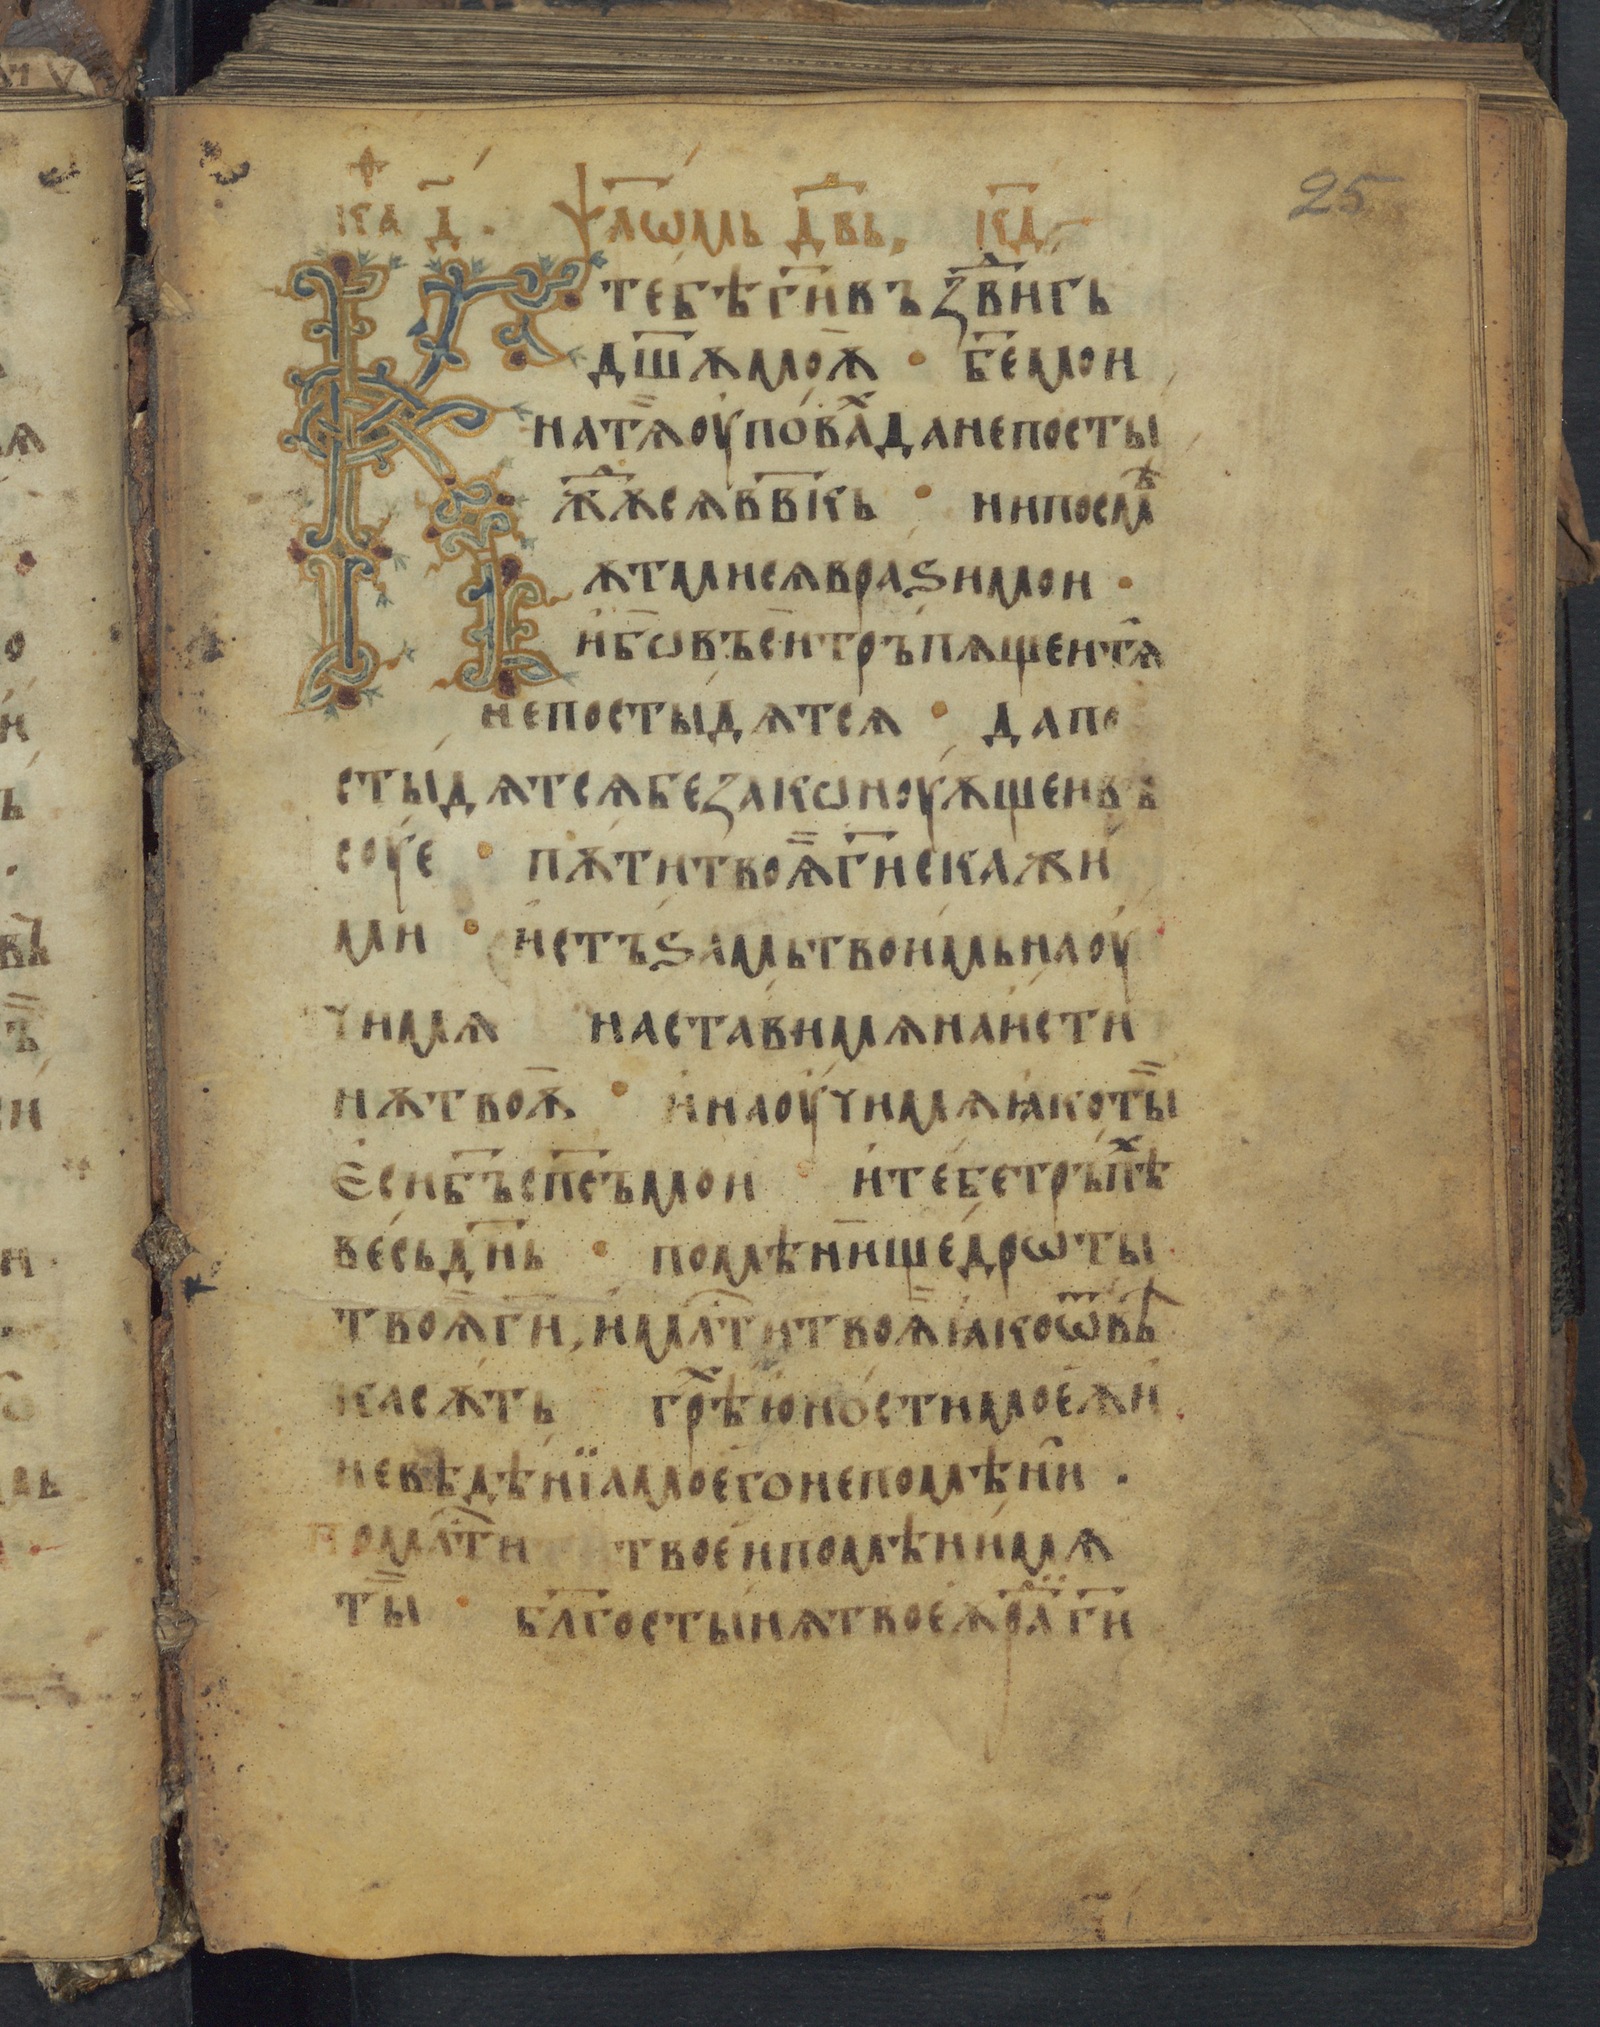 25
ка д҃ · ѱало́мь дв҃ь · кд҃
Къ тебѣ г҃и въꙁдв҃игь
дш҃ѫ моѫ · б҃е мои
на тѧ оупова́хда не посты
ждѫ сѧ в вѣкь · ни послѣ
ѫт ми сѧ враѕи мои ·
и́бѡ въси тръпѧщеи тѧ
не постыдѧт сѧ · да по
стыдѧт сѧ беꙁаконоуѫщеи въ
соуе · пѫти твоѧ г҃и скажи
ми · и́ стъѕамь твоимь наоу
чи мѧ настави мѧ на исти
нѫ твоѫ · и́ наоучи мѧ ꙗко ты
еси б҃ъ сп҃съ мои и́ тебе тръпѣх
весь дн҃ь · помѣни щедрѡты
твоѧ г҃и, и́ мл҃ти твоѧ ꙗко ѿ вѣ
ка сѫть грѣх юности моеѫ и
невѣдѣнїа моего не помѣни ·
по мл҃ти твоеи помѣни мѧ
ты · бл҃гостынѧ твоеѫ рад҃и г҃и